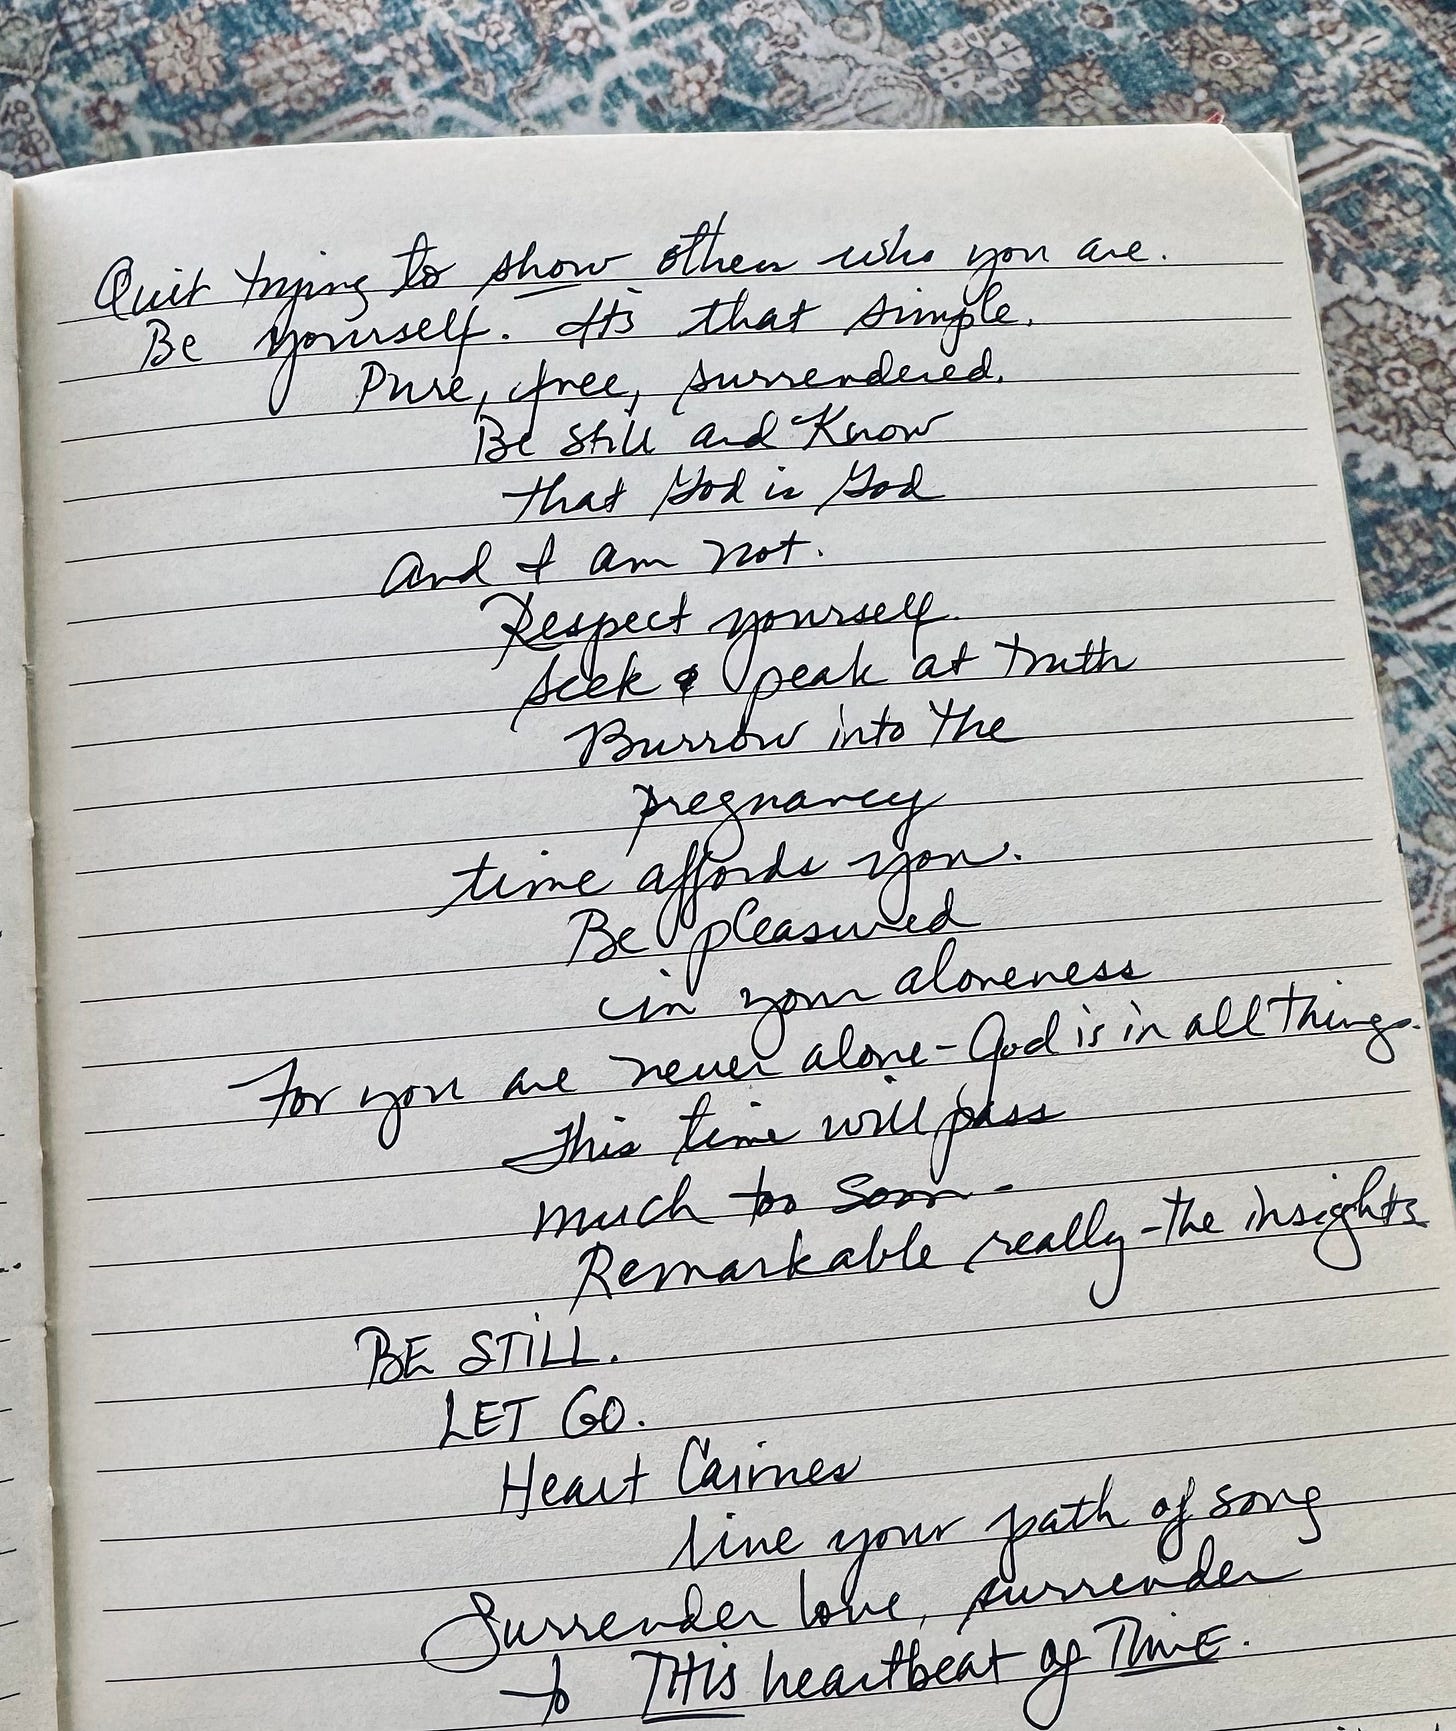 Quit trying to show others who you are.
Be yourself. It's that simple.
Pure, free, surrendered.
Be still and Know
that God is God
And I am not.
Respect yourself.
Seek & peak at truth
Burrow into the
pregnancy
time affords you.
Be pleasured
in your aloneness
For you are never alone - God is in all things.
This time will pass
much too soon -
Remarkable really - the insights
BE STILL.
LET GO.
Heart Cairnes
line your path of song
Surrender love, surrender
to THIS heartbeat of TIME.